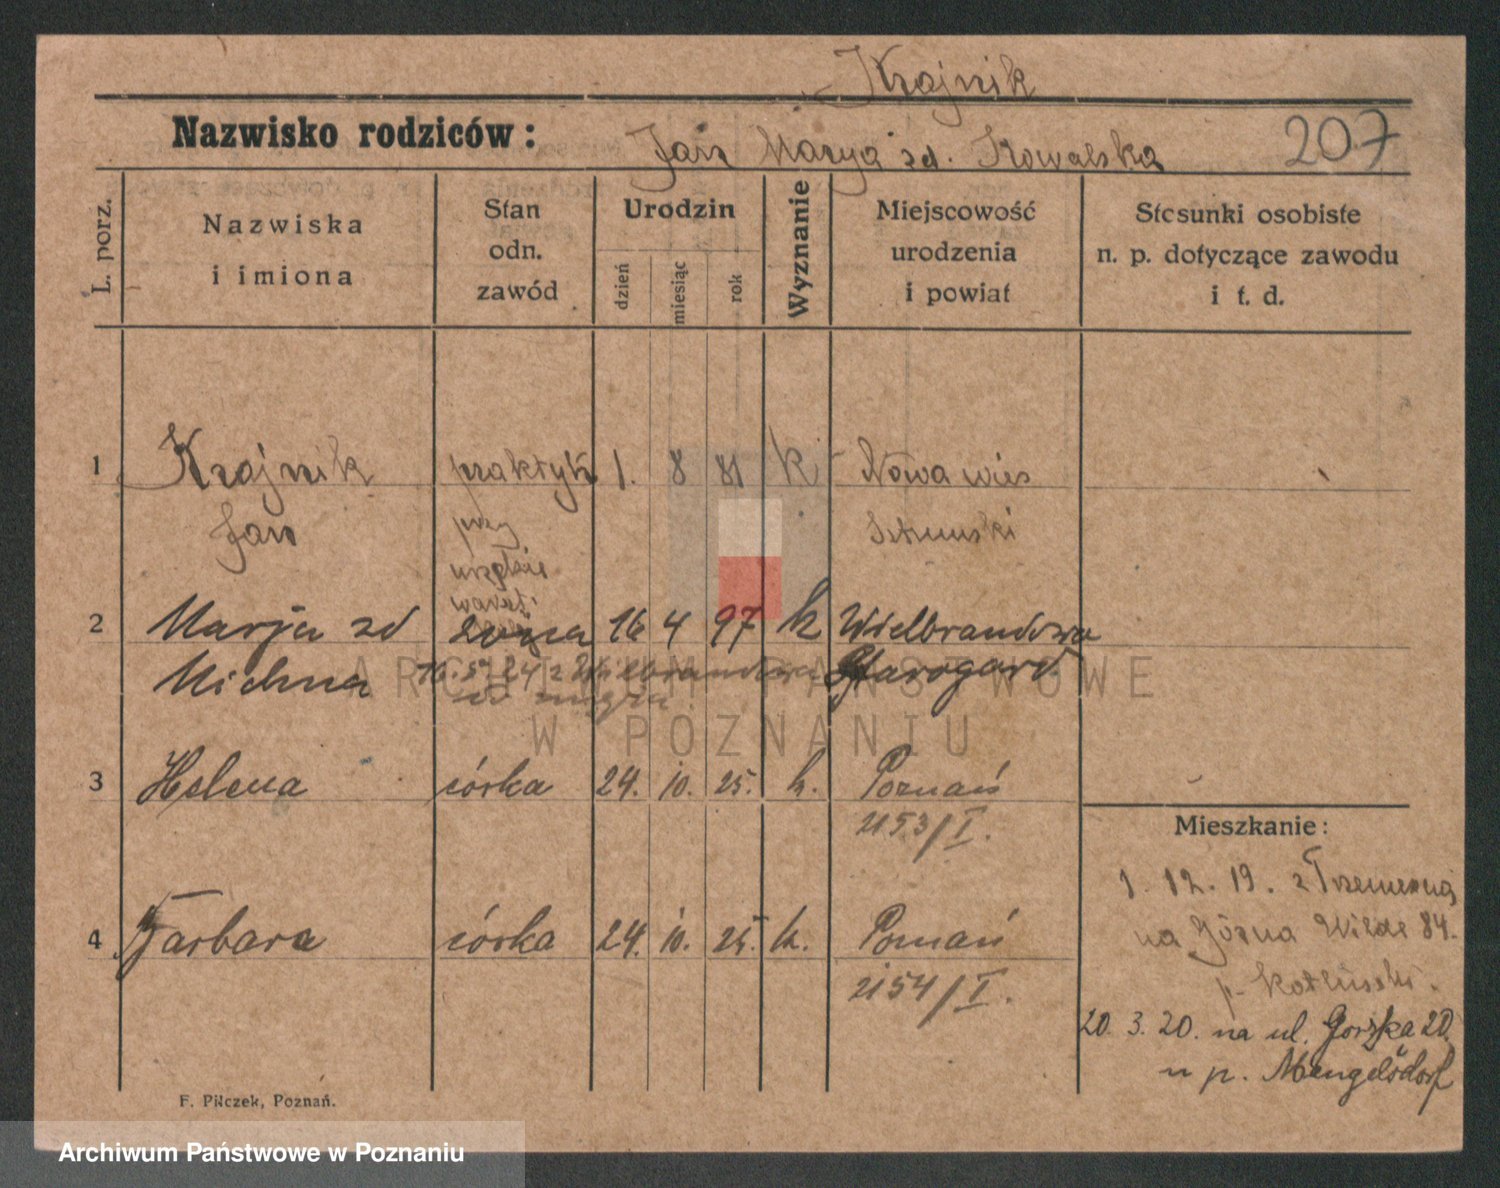 Krajnik
Nazwisko rodziców: Jan Marya zd. Kowalska 207
L. porz.
Nazwiska i imiona
Stan odn. zawód
Urodzin
dzień
miesiąc
rok
Wyznanie
Miejscowość urodzenia i powiat
Stosunki osobiste n. p. dotyczące zawodu i t. d.
1 Krajnik praktyk 1. 8 81 k Nowa wieś
Jan przy
urzędzie
2 Marja zd żona 16 4 97 k Wielbrandowa
Michna 24 z Wielbrandowa Starogard
do męża
ARCHIWUM PAŃSTWOWE
W POZNANIU
3 Helena córka 24. 10. 25. k. Poznań
2153/I.
Mieszkanie:
1. 12. 19. z Trzemeszna
na Górna Wilda 84.
4 Barbara córka 24. 10. 25. k. Poznań
2154/I.
p.
20. 3. 20. na ul. 20.
u p. Mengelsdorf
F. Pilczek, Poznań.
Archiwum Państwowe w Poznaniu